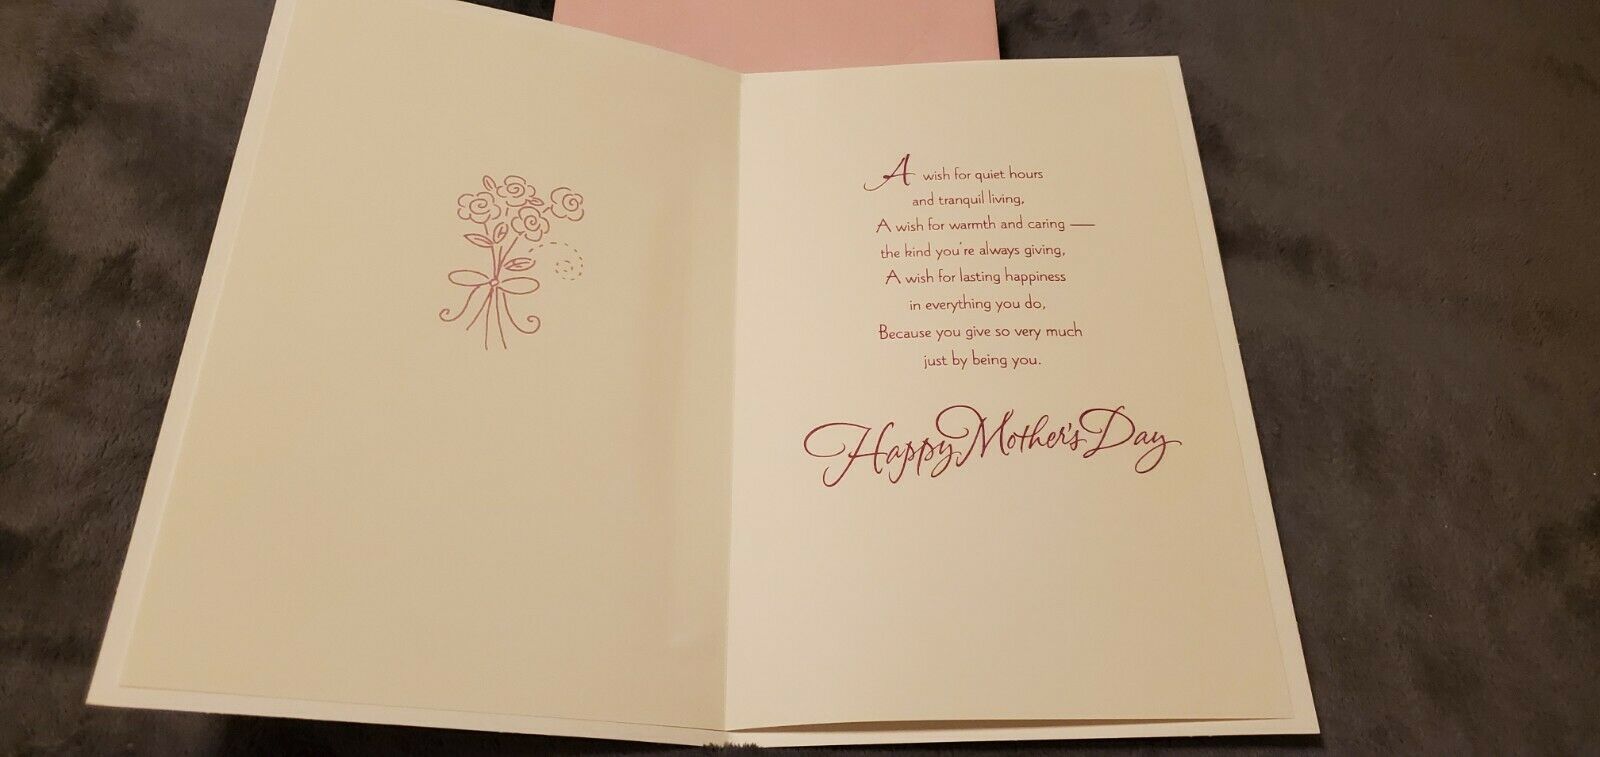 A wish for quiet hours
and tranquil living,
A wish for warmth and caring —
the kind you're always giving,
A wish for lasting happiness
in everything you do,
Because you give so very much
just by being you.
Happy Mother's Day